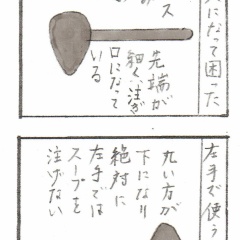 になって困った
ス
先端が
細く、注ぎ
口になって
いる
左手で使う
丸い方が
下になり
絶対に
左手では
スープを
注げない